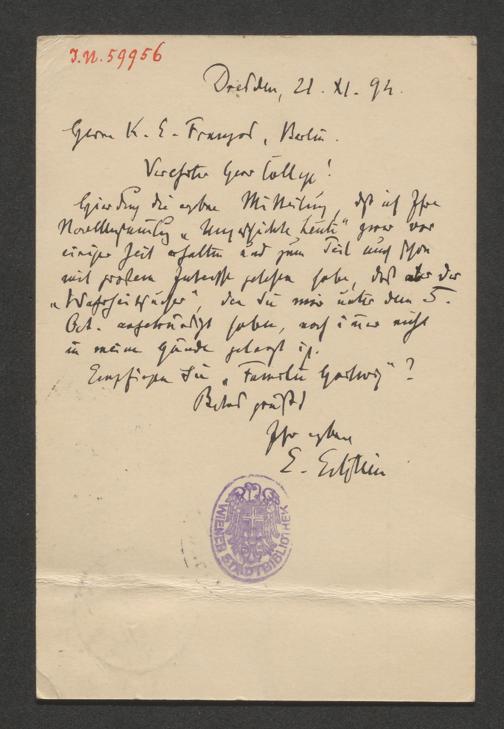 J.N. 59956
Dresden, 21. XI. 94.
Herrn K. E. Franzos, Berlin.
Verehrter Herr College!
Hierdurch die ergebne Mitteilung, daß ich Ihre
Novellensammlung „Ungeschickte Leute“ zwar vor
einiger Zeit erhalten und zum Teil auch schon
mit großem Interesse gelesen habe, daß aber der
„Wahrheitsucher“, den Sie mir unter dem 5.
Oct. angekündigt haben, noch immer nicht
in meine Hände gelangt ist.
Empfingen Sie „Familie Hartwig“?
Bestens grüßend
Ihr ergebner
E. Eckstein
WIENER STADTBIBLIOTHEK